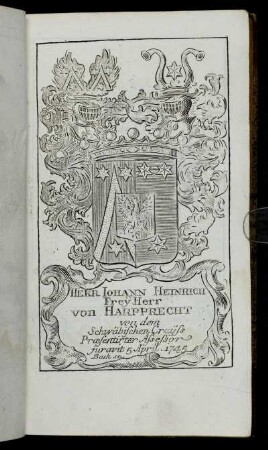 HERR JOHANN HEINRICH
Frey Herr
von HARPPRECHT
von dem
Schwäbischen Craiss
Præsentirter Assessor
juravit 5 April 1745